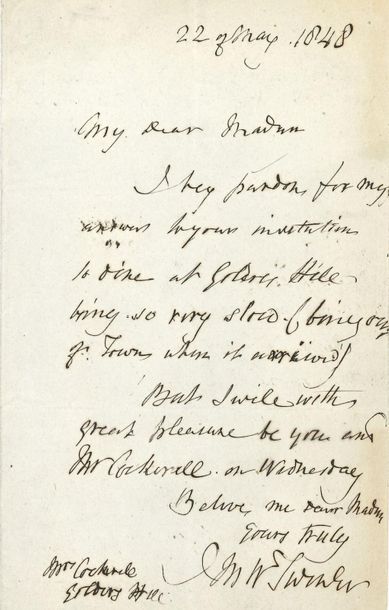 22 of May. 1848
My dear Madam
I beg pardon for my
answer to yours invitation
to dine at Golders Hill
being so very slow (being out
of Town when it arrived)
But I wile with
great pleasure be you and
Mr Cockerell on Wednesday
Believe me dear Madam
yours truly
J M W
Mrs Cockerell
Golders Hill